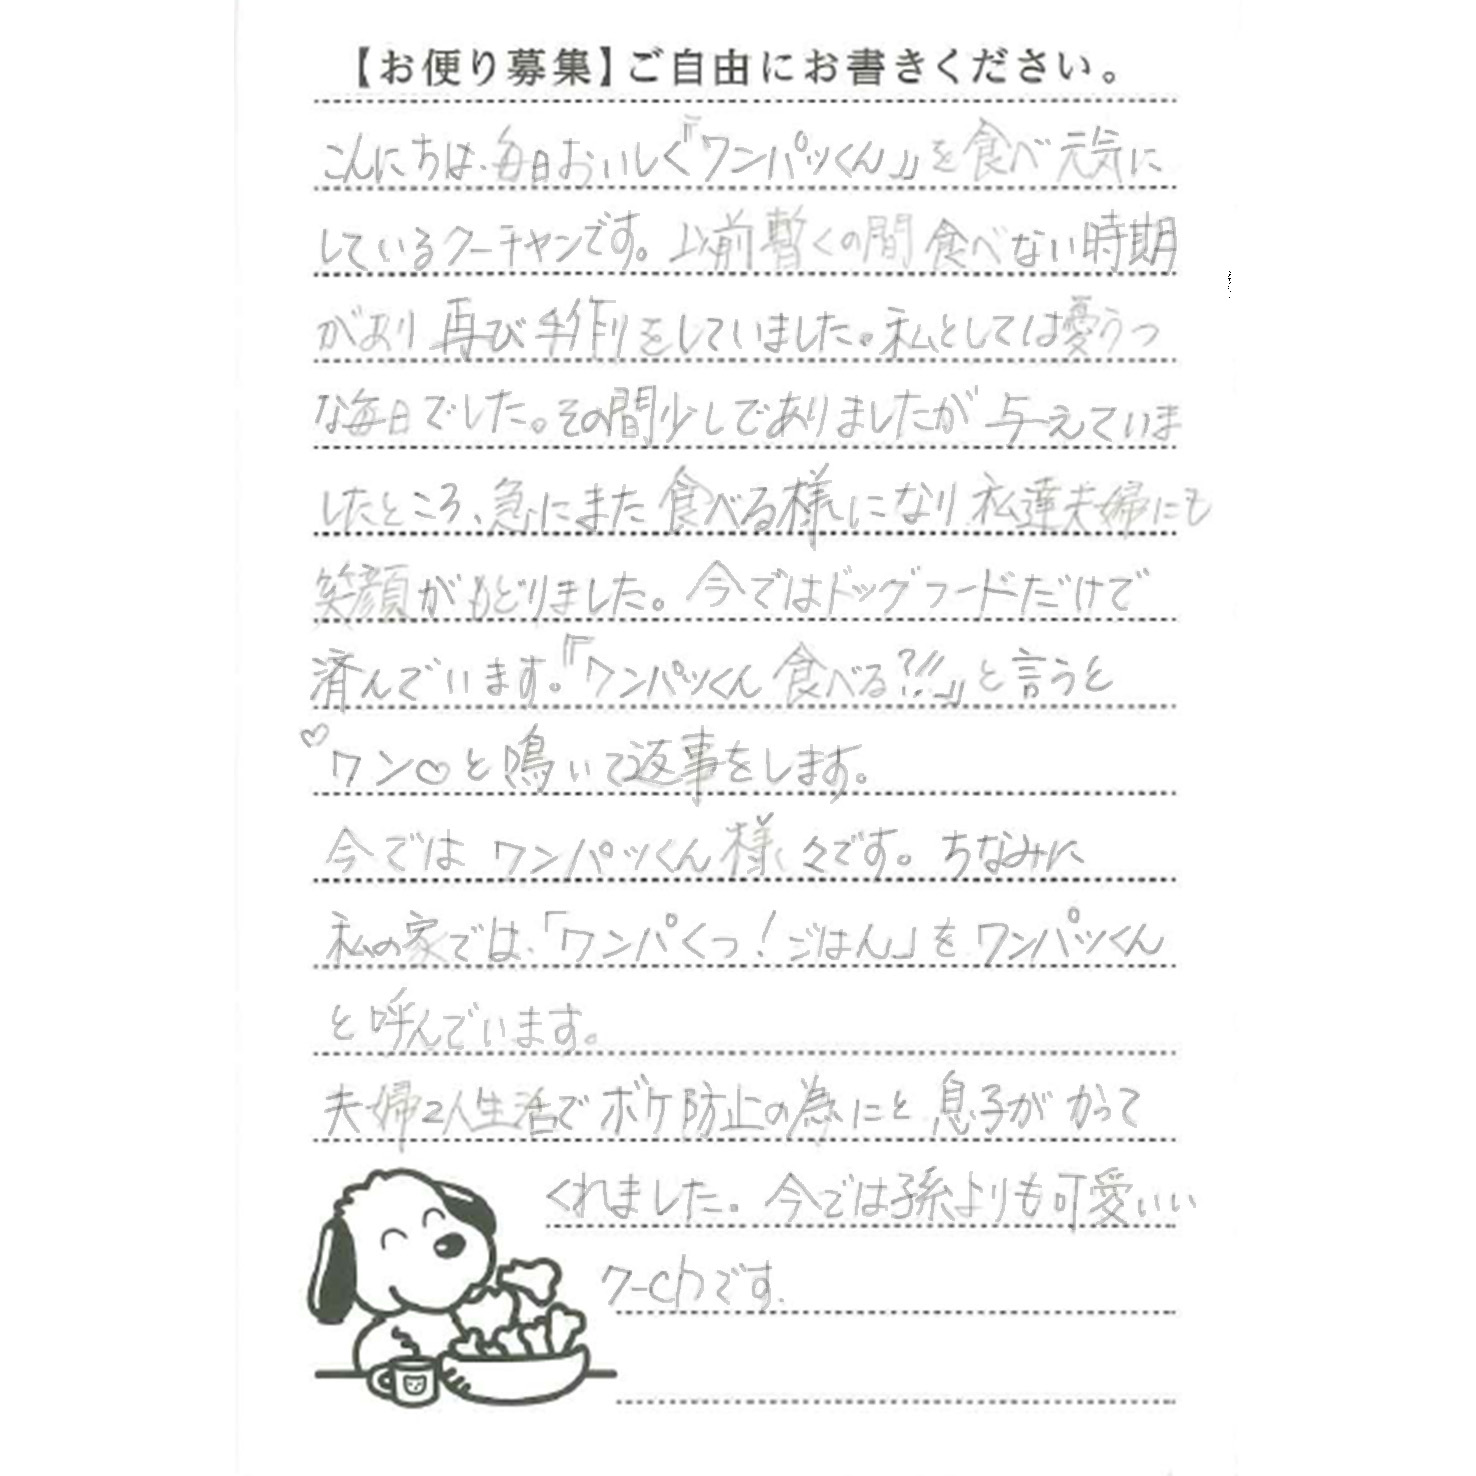 【お便り募集】ご自由にお書きください。
こんにちは、毎日おいしく『ワンパッくん』を食べ元気に
しているクーチャンです。以前暫くの間食べない時期
があり再び手作りをしていました。私としては憂うつ
な毎日でした。その間少しでありましたが与えていま
したところ、急にまた食べる様になり私達夫婦にも
笑顔がもどりました。今ではドッグフードだけで
済んでいます。『ワンパッくん食べる?!!』と言うと
♡ワン♡と鳴いて返事をします。
今ではワンパッくん様々です。ちなみに
私の家では、「ワンパくっ!ごはん」をワンパッくん
と呼んでいます。
夫婦2人生活でボケ防止の為にと息子がかって
くれました。今では孫よりも可愛いい
クーchです.